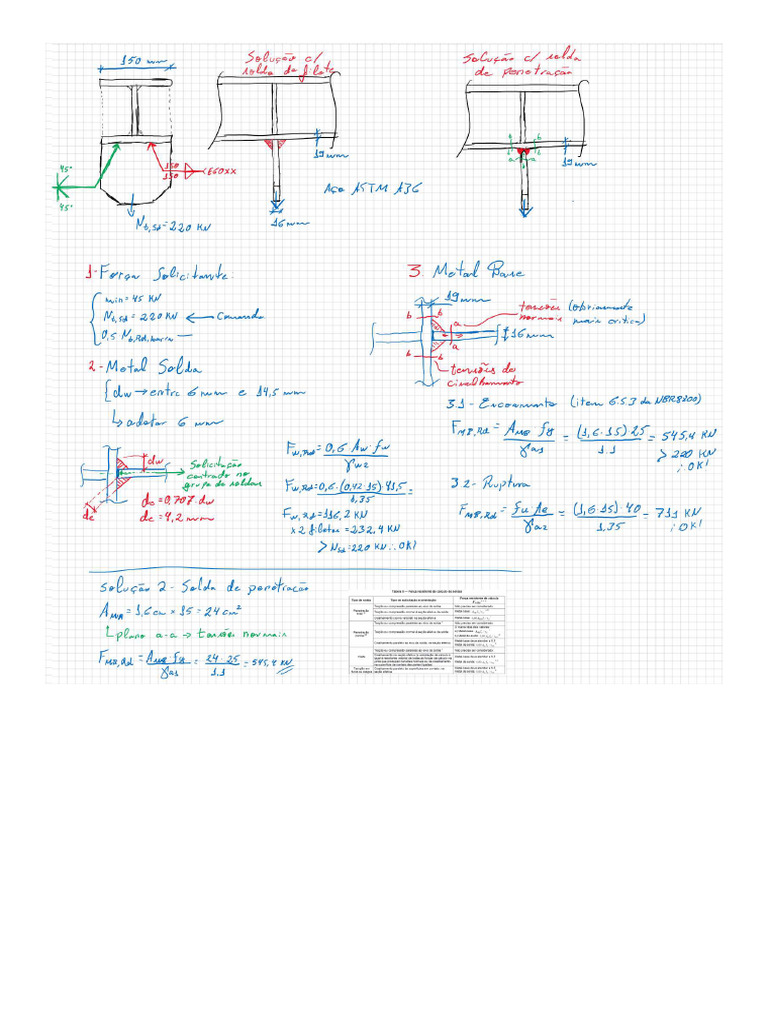 150 mm
Solução c/
solda de filete
Solução c/ solda
de penetração
45°
45°
150
150
E60XX
19 mm
19 mm
Aço ASTM A36
Nt,Sd = 220 KN
16 mm
b b
a a
1- Força Solicitante
min = 45 KN
Nt,Sd = 220 KN ← Comanda
0,5 Nt,Rd,barra —
2- Metal Solda
dw → entre 6 mm e 14,5 mm
↳ adotar 6 mm
dw
Solicitação
centrada no
grupo de soldas
de = 0,707·dw
de = 4,2 mm
de
Fw,Rd = 0,6 Aw fw
γw2
Fw,Rd = 0,6·(0,42·15)·41,5 =
1,35
Fw,Rd = 116,2 KN
x 2 filetes = 232,4 KN
> NSd = 220 KN ∴ OK!
3. Metal Base
19 mm
b b
a
a
b b
tensões (obviamente
normais mais crítica)
16 mm
tensões de
cisalhamento
3.1 - Escoamento (item 6.5.3 da NBR8800)
FMB,Rd = AMB fy = (1,6·15)25 = 545,4 KN
γa1 1.1
> 220 KN
∴ OK!
3.2 - Ruptura
FMB,Rd = fu Ae = (1,6·15)·40 = 711 KN
γa2 1,35
∴ OK!
Solução 2 - Solda de penetração
AMB = 1,6 cm x 15 = 24 cm²
↳ plano a-a → tensões normais
FMB,Rd = AMB fy = 24·25 = 545,4 KN
γa1 1.1